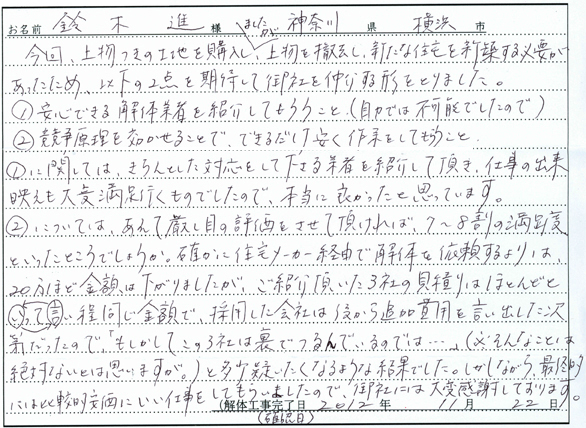 お名前 鈴木 進 様 神奈川 県 横浜 市
ましたが
今回、上物つきの土地を購入し、上物を撤去し、新たな住宅を新築する必要が
あったため、以下の2点を期待して御社を仲介する形をとりました。
①安心できる解体業者を紹介してもらうこと.(自力では不可能でしたので)
②競争原理を効かせることで、できるだけ安く作業をしてもらうこと.
①に関しては、きちんとした対応をして下さる業者を紹介して頂き、仕事の出来
映えも大変満足行くものでしたので、本当に良かったと思っています。
②については、あえて厳し目の評価をさせて頂ければ、7〜8割の満足度
といったところでしょうか。確かに住宅メーカー経由で解体を依頼するよりは、
20万ほど金額は下がりましたが、ご紹介頂いた3社の見積りはほとんどと
いって言い程同じ金額で、採用した会社は後から追加費用を言い出した次
第だったので、「もしかしてこの3社は裏でつるんでいるのでは…」(※そんなことは
絶対ないとは思いますが。)と多少疑いたくなるような結果でした。しかしながら、最終的
には比較的安価にいい仕事をしてもらいましたので、御社には大変感謝しております。
(解体工事完了日 2012年 11月 22日)
(確認日)